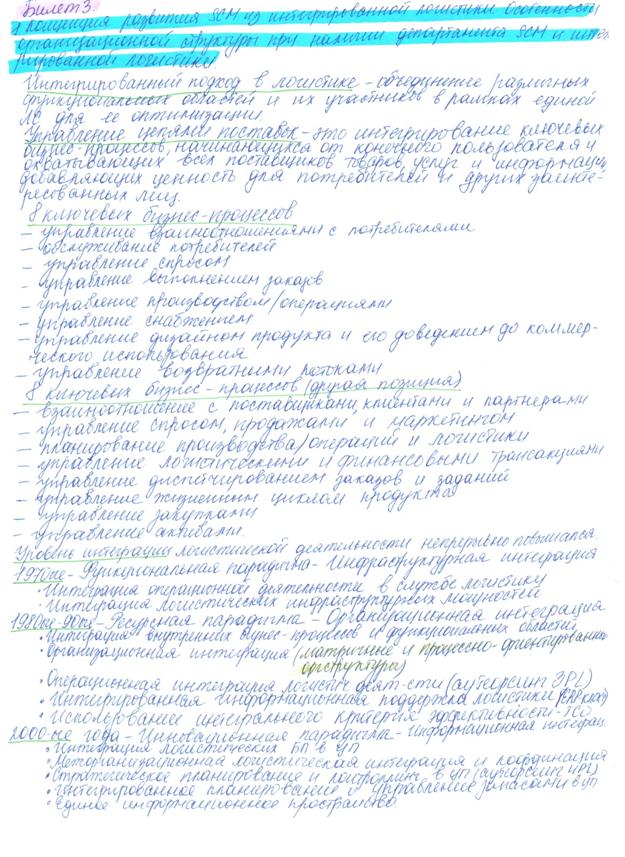 Билет 3.
концепция развития SCM из интегрированной логистики. Особенности
организационной структуры при наличии департамента SCM и интег-
рированной логистики
Интегрированный подход в логистике - объединение различных
функциональных областей и их участников в рамках единой
ЛС для ее оптимизации.
Управление цепями поставок - это интегрирование ключевых
бизнес-процессов, начинающихся от конечного пользователя и
охватывающих всех поставщиков товаров, услуг и информации,
добавляющих ценность для потребителей и других заинте-
ресованных лиц.
8 ключевых бизнес-процессов
- управление взаимоотношениями с потребителями
- обслуживание потребителей
- управление спросом
- управление выполнением заказов
- управление производством/операциями
- управление снабжением
- управление дизайном продукта и его доведением до коммер-
ческого использования
- управление возвратными потоками
8 ключевых бизнес-процессов (другая позиция)
- взаимоотношение с поставщиками, клиентами и партнерами
- управление спросом, продажами и маркетингом
- планирование производства/операций и логистики
- управление логистическими и финансовыми трансакциями
- управление диспетчированием заказов и заданий
- управление жизненным циклом продукта
- управление закупками
- управление активами.
Уровень интеграции логистической деятельности непрерывно повышался.
1970ые - Функциональная парадигма - Инфраструктурная интеграция
• Интеграция операционной деятельности в службе логистики
• Интеграция логистических инфраструктурных мощностей
1980ые-90ые - Ресурсная парадигма - Организационная интеграция
• Интеграция внутренних бизнес-процессов и функциональных областей
• Организационная интеграция (матричные и процессно-ориентированные
оргструктуры)
• Операционная интеграция логистич деят-сти (аутсорсинг 3PL)
• Интегрированная информационная поддержка логистики (ERP класс)
• Использование интегрального критерия эффективности - TCO
2000-ые года - Инновационная парадигма - Информационная интеграц.
• Интеграция логистических БП в ЦП
• Межорганизационная логистическая интеграция и координация
• Стратегическое планирование и контроллинг в ЦП (аутсорсинг 4PL)
• Интегрированное планирование и управление запасами в ЦП
• Единое информационное пространство.